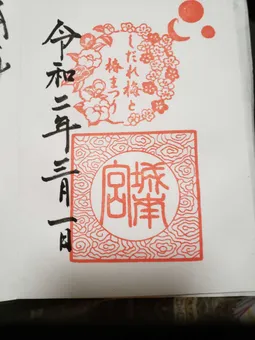 しだれ梅と
梅まつり
城南宮
令和二年三月一日